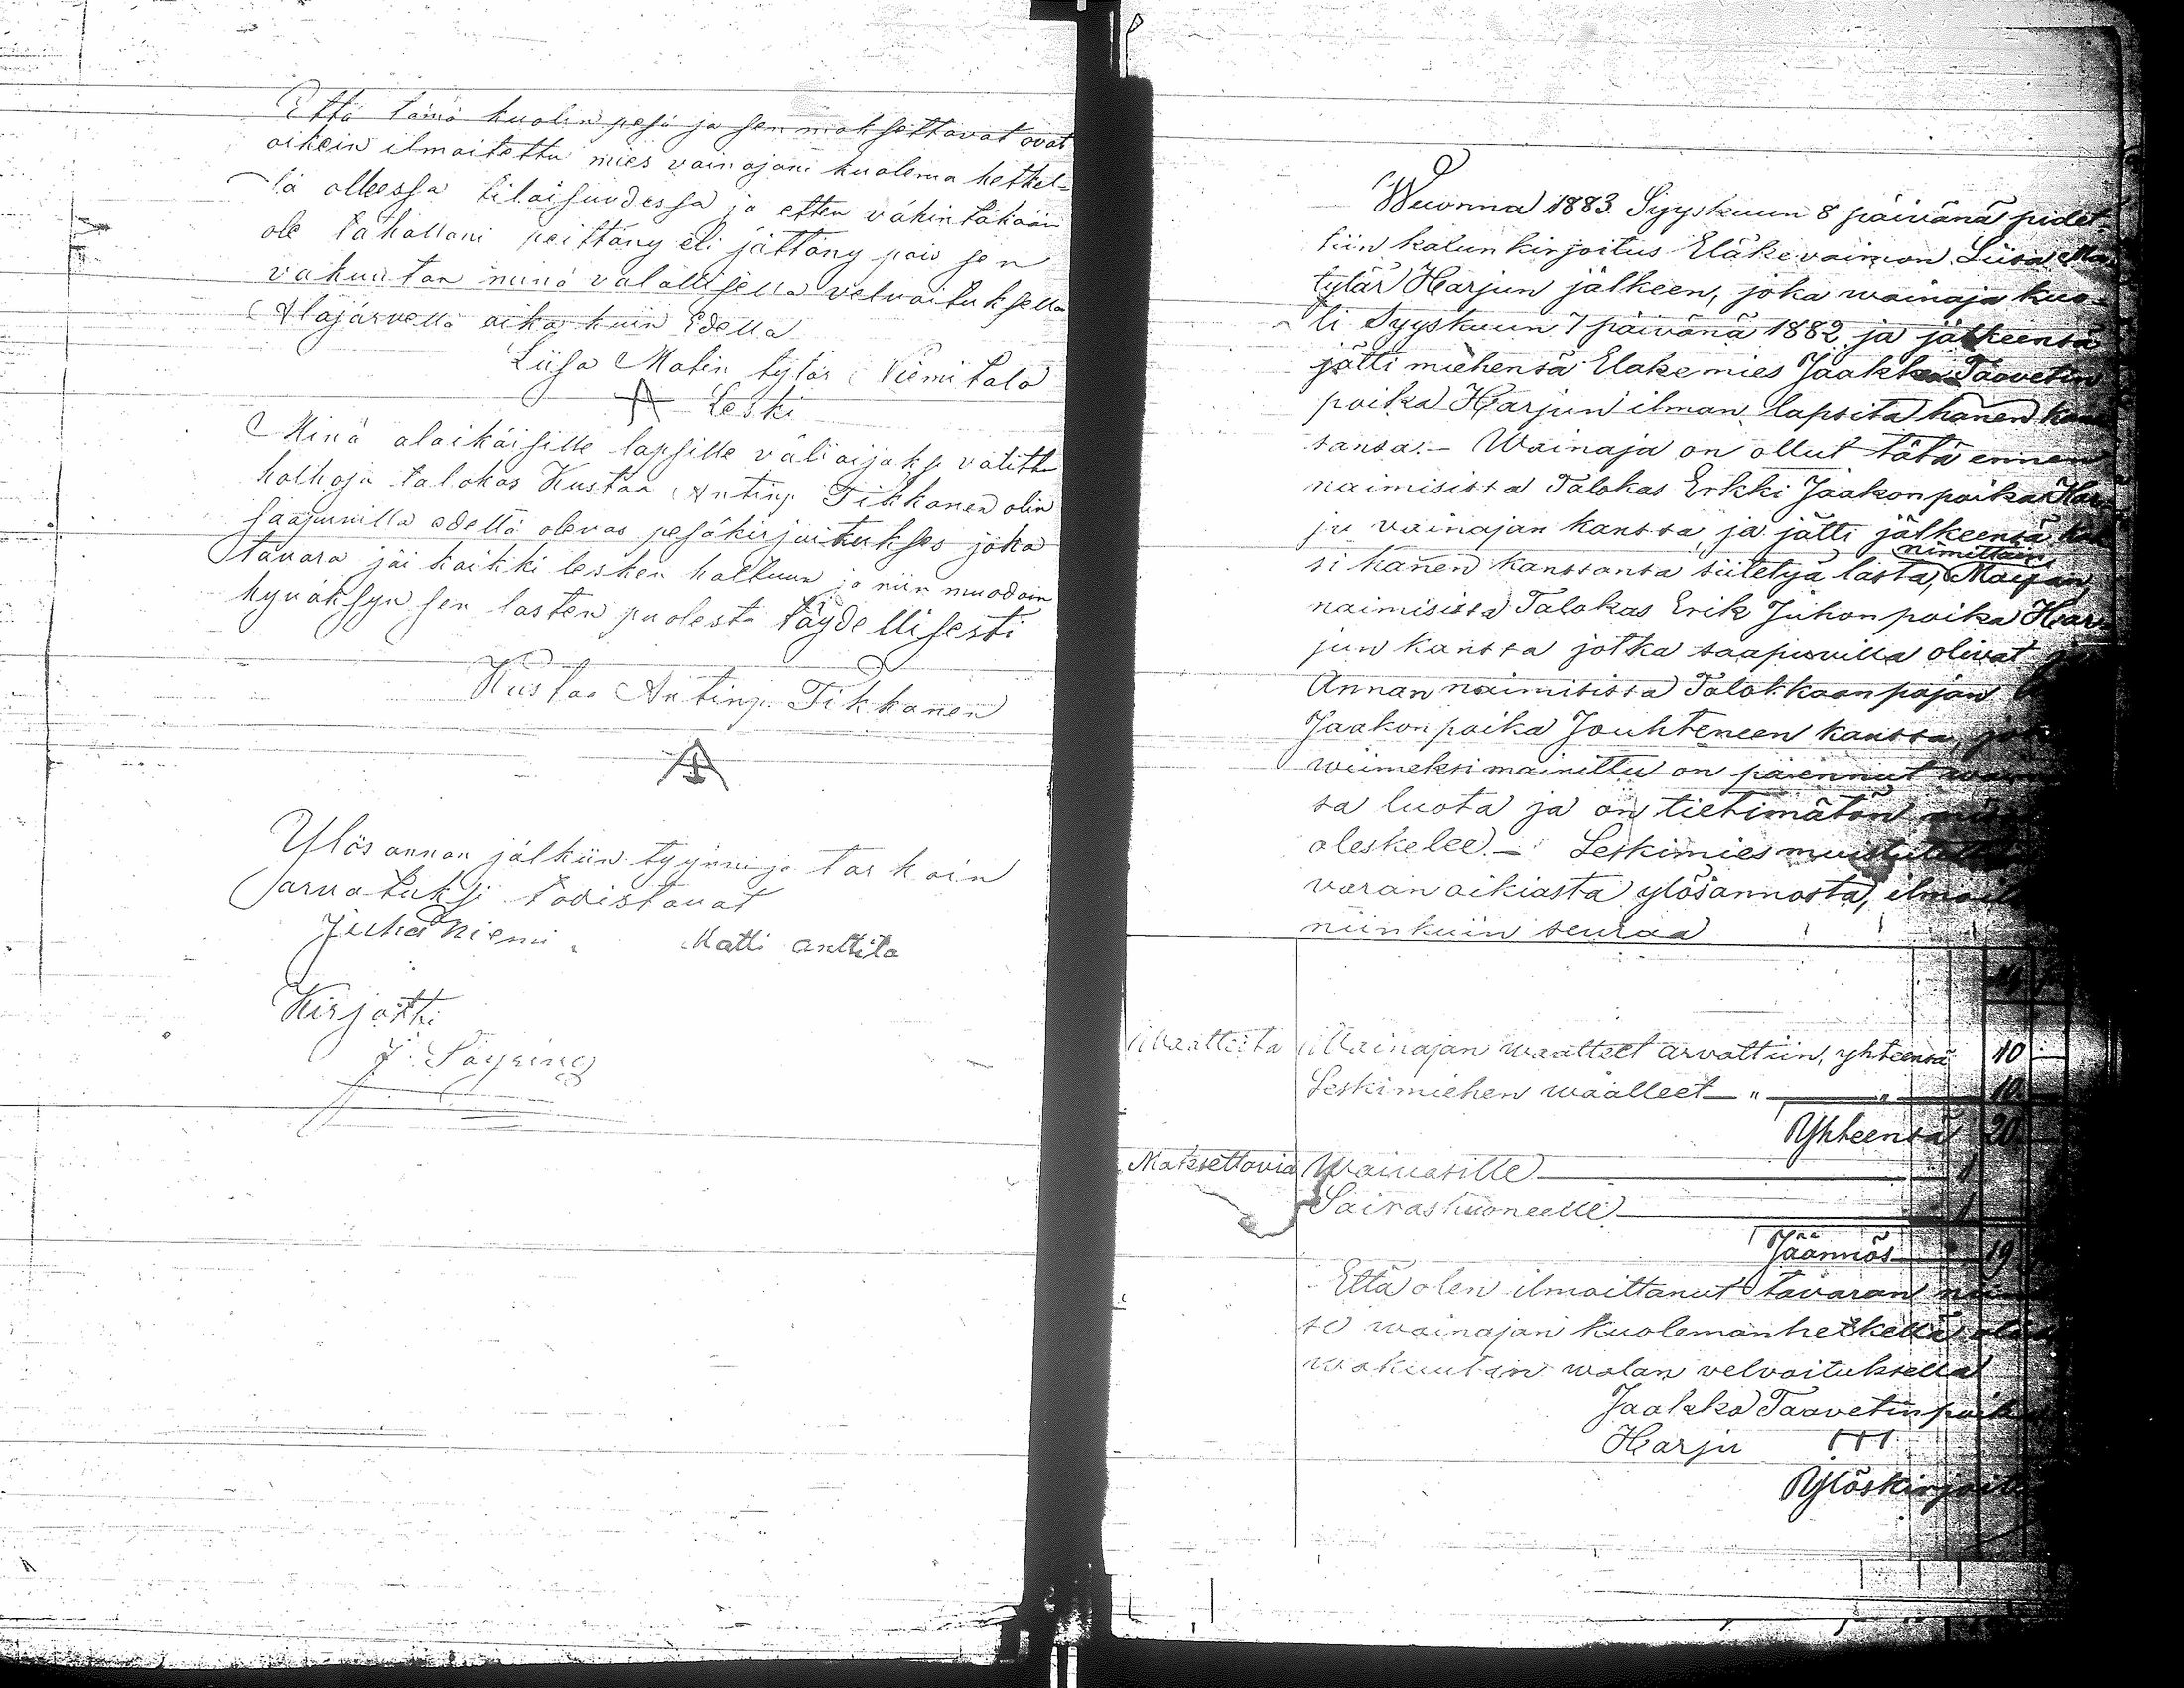 Että tämä kuolin pesä ja sen maksettavat ovat
oikein ilmoitettu mies vainajani kuolema hetkel-
lä olleessa tilaisuudessa ja etten vähintäkään
ole tahallani peittäny eli jättäny pois sen
vakuutan minä valallisella velvoituksella
Alajärvellä aika kuin Edellä
Liisa Matin tytär Niemitalo
Leski
Minä alaikäisille lapsille väliaijaks valittu
holhoja talokas Kustaa Antinp. Tikkanen olin
saapuvilla edellä olevas pesäkirjoitukses joka
tavara jäi kaikki lesken haltuun ja niin muodoin
hyväksyn sen lasten puolesta täydellisesti
Kustaa Antinp. Tikkanen
Ylös annon jälkiin tyynni ja tarkoin
arvatuksi todistavat
Juha Niemi Matti anttila
Kirjotti
J. Säyring
Wuonna 1883 Syyskuun 8 päivänä pidet-
tiin kalunkirjoitus Eläkevaimon Liisa
tytär Harjun jälkeen, joka wainaja kuo-
li Syyskuun 7 päivänä 1882 ja jälkeensä
jätti miehensä Eläkemies Jaakko Taavetin
poika Harjun ilman lapsita hänen
sansa. — Wainaja on ollut tätä ennen
naimisissa Talokas Erkki Jaakonpoika Har-
ju vainajan kanssa, ja jätti jälkeensä
nimittäin
si hänen kanssansa siitetyä lasta, Maijan
naimisissa Talokas Erik Juhonpoika Har-
jun kanssa jotka saapuvilla olivat
Annan naimisissa Talokkaanpojan
Jaakonpoika Jouhteneen kanssa,
wiimeksi mainittu on paennut
sa luota ja on tietimätön
oleskelee. — Leskimies
varan oikiasta ylösannosta,
niinkuin seuraa
Waatteita Wainajan waatteet arvattiin, yhteensä 10
Leskimiehen waatteet — " — " — 10
Yhteensä 20
Maksettavia Waivasille — 1
Sairashuoneelle — 1
Jäännös 19
Että olen ilmoittanut tavaran
se wainajan kuolemanhetkellä
wakuutan walan velvoituksella
Jaakko Taavetinpoika
Harju
Ylöskirjoite